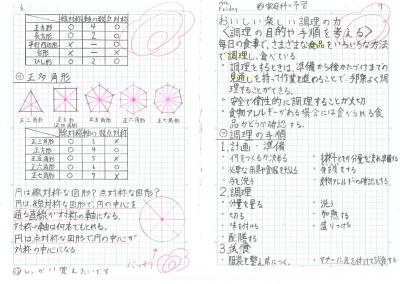 線対称 対称の軸 点対称
正方形 〇 4 〇
長方形 〇 2 〇
平行四辺形 × ー 〇
台形 × ー ×
◎正多角形
正三角形 正五角形 正六角形
線対称 軸の数 点対称
正三角形 〇 3 ×
正方形 〇 4 〇
正五角形 〇 5 ×
正六角形 〇 6 〇
正七角形 〇 7 ×
円は線対称な図形？点対称な図形？
円は線対称な図形で、円の中心を
通る直線が対称の軸になる。
対称の軸は何本でもとれる。
円は点対称な図形で、円の中心が
対称の中心になる
バッチリ
Friday
家庭科の予習
おいしい楽しい調理の力
〈調理の目的や手順を考える〉
毎日の食事で、さまざまな食品をいろいろな方法
で調理し、食べている
・調理をするときは、準備から後かたづけまでの
見通しを持って作業を進めることで、手際よく調
理することができる。
・安全で衛生的に調理することが大切
・食物アレルギーがある場合には食べられる食
品かどうか確認する。
◎調理の手順
1.計画・準備
・何をつくるか決める
・必要な用具や食器を出す
・手を洗う
・身支度をする
・食物アレルギーの確認をする
2.調理
・分量を量る ・洗う
・切る ・加熱する
・味を付ける ・盛りつける
・配膳する
3.試食
・服装を整え席につく。
・マナーに気を付けて試食する